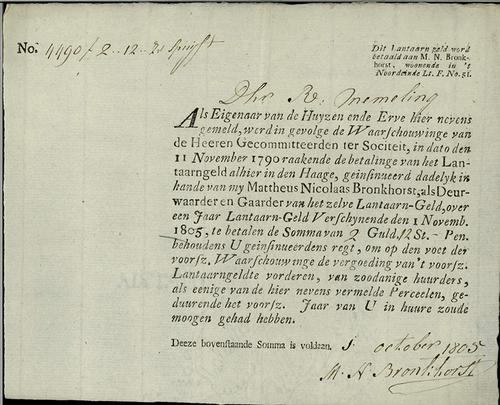 No. 4490 f 2-12- 2d Spuyst
Dit Lantaarn geld word
betaald aan M. N. Bronk-
horst, woonende in 't
Noordeinde Lt. F. No. 51.
Dhr R. Memeling
Als Eigenaar van de Huyzen ende Erve hier nevens
gemeld, werd in gevolge de Waarschouwinge van
de Heeren Gecommitteerden ter Sociteit, in dato den
11 November 1790 raakende de betalinge van het Lan-
taarngeld alhier in den Haage, geinsinueerd dadelyk in
hande van my Mattheus Nicolaas Bronkhorst, als Deur-
waarder en Gaarder van het zelve Lantaarn-Geld, over
een Jaar Lantaarn-Geld Verschynende den 1 Novemb.
1805, te betalen de Somma van 2 Guld. 12 St. - Pen.
behoudens U geinsinueerdens regt, om op den voet der
voorsz. Waarschouwinge de vergoeding van 't voorsz.
Lantaarngeld te vorderen, van zoodanige huurders,
als eenige van de hier nevens vermelde Perceelen, ge-
duurende het voorsz. Jaar van U in huure zoude
moogen gehad hebben.
Deeze bovenstaande Somma is voldaan. october 1805
M. N. Bronkhorst